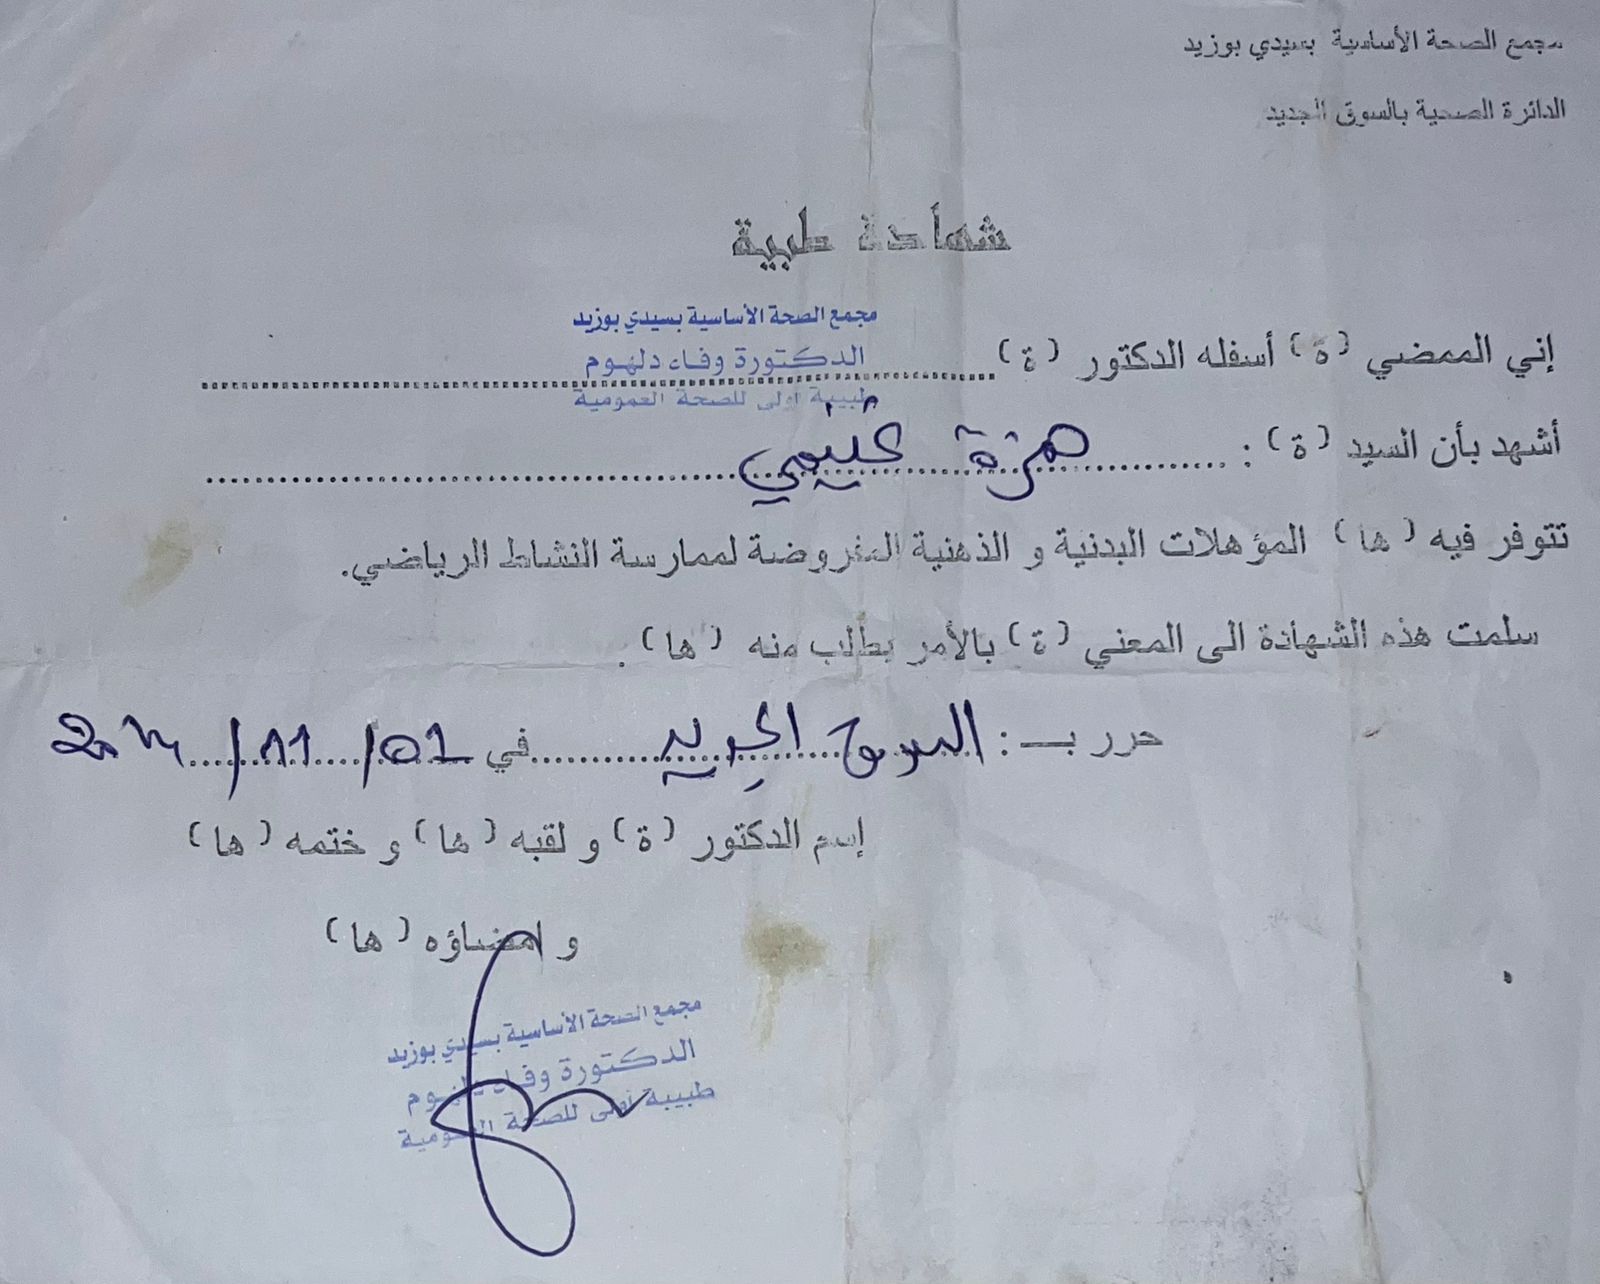 مجمع الصحة الأساسية بسيدي بوزيد
الدائرة الصحية بالسوق الجديد
شهادة طبية
مجمع الصحة الأساسية بسيدي بوزيد
إني الممضي (ة) أسفله الدكتور (ة) الدكتورة وفاء دلهوم
طبيبة أولى للصحة العمومية
أشهد بأن السيد (ة) : حمزة غنيمي
تتوفر فيه (ها) المؤهلات البدنية و الذهنية المفروضة لممارسة النشاط الرياضي.
سلمت هذه الشهادة الى المعني (ة) بالأمر بطالب منه (ها) .
حرر بـ : السوق الجديد في 01/11/
إسم الدكتور (ة) و لقبه (ها) و ختمه (ها)
و امضاؤه (ها)
مجمع الصحة الأساسية بسيدي بوزيد
الدكتورة وفاء دلهوم
طبيبة أولى للصحة العمومية